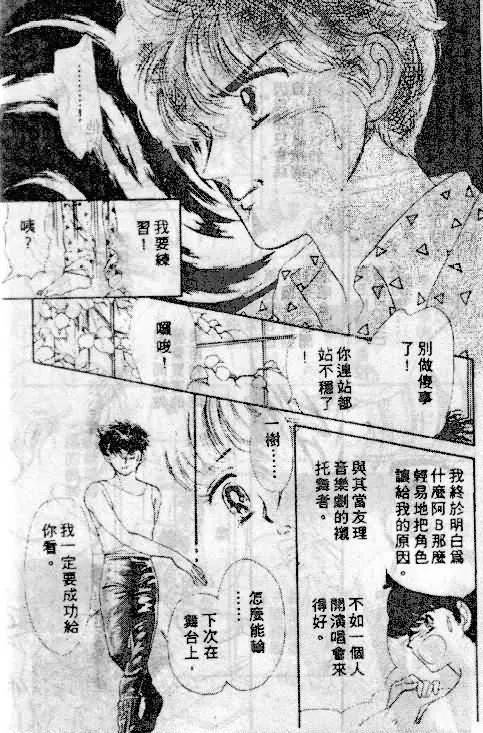 …………
我要練
習！
咦？
別做傻事
了！
你連站都
站不穩了
！
囉唆！
一樹……
我終於明白爲
什麼阿B那麼
輕易地把角色
讓給我的原因。
與其當友理
音樂劇的襯
托舞者。
不如一個人
開演唱會來
得好。
怎麼能輸
……
下次在
舞台上，
我一定要成功給
你看。